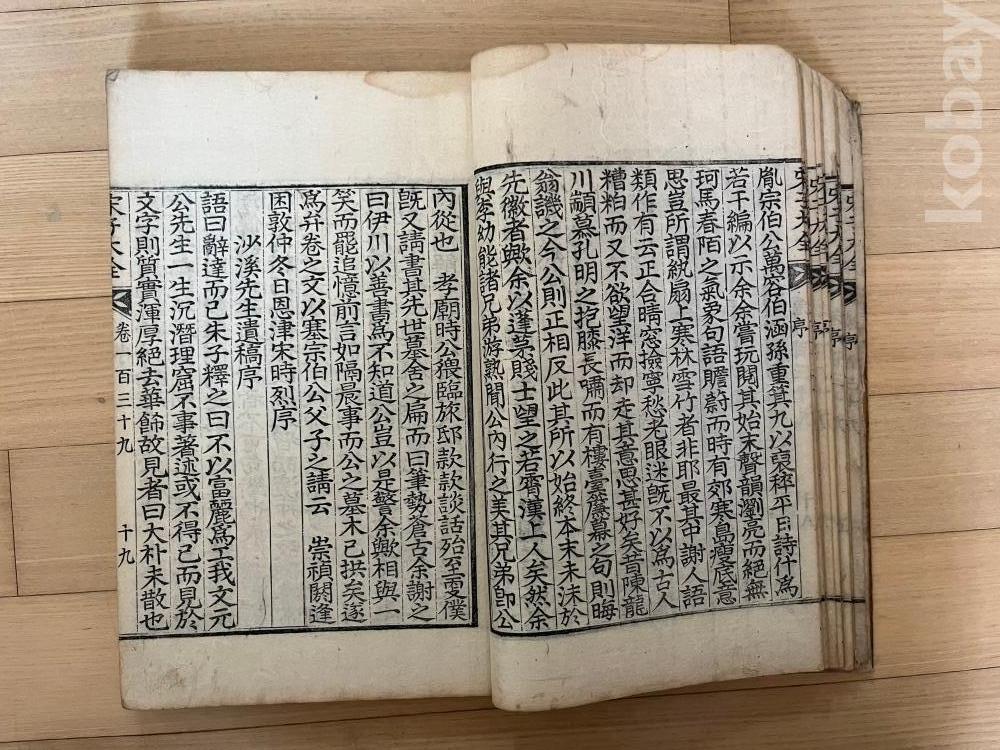 胤宗伯公萬容伯涵孫重箕九以裒稡平日詩什爲
若干編以示余余嘗玩閱其始末聲韻瀏亮而絕無
珂馬春陌之氣象句語贍蔚而時有郊寒島瘦底意
思豈所謂紈扇上寒林雪竹者非耶最其中謝人語
類作有云正合晴窓撿寧愁老眼迷旣不以爲古人
糟粕而又不欲望洋而却走其意思甚好矣昔陳龍
川顚慕孔明之抱膝長嘯而有樓臺簾幕之句則晦
翁譏之今公則正相反此其所以始終本末未沬於
先徽者歟余以蓬蓽賤士望之若霄漢上人矣然余
自孝幼能諸兄弟游熟聞公內行之美其兄弟卽公
內從也 孝廟時公猥臨旅邸款款談話殆至更僕
旣又請書其先世墓舍之扁而曰筆勢蒼古余謝之
曰伊川以善書爲不知道公豈以是警余歟相與一
笑而罷追憶前言如隔晨事而公之墓木已拱矣遂
爲弁卷之文以塞宗伯公父子之請云 崇禎閼逢
困敦仲冬日恩津宋時烈序
沙溪先生遺稿序
語曰辭達而已朱子釋之曰不以富麗爲工我文元
公先生一生沉潛理窟不事著述或不得已而見於
文字則質實渾厚絕去華飾故見者曰大朴未散也
宋子大全 卷一百三十九 十九
序
序
序
序
kobay